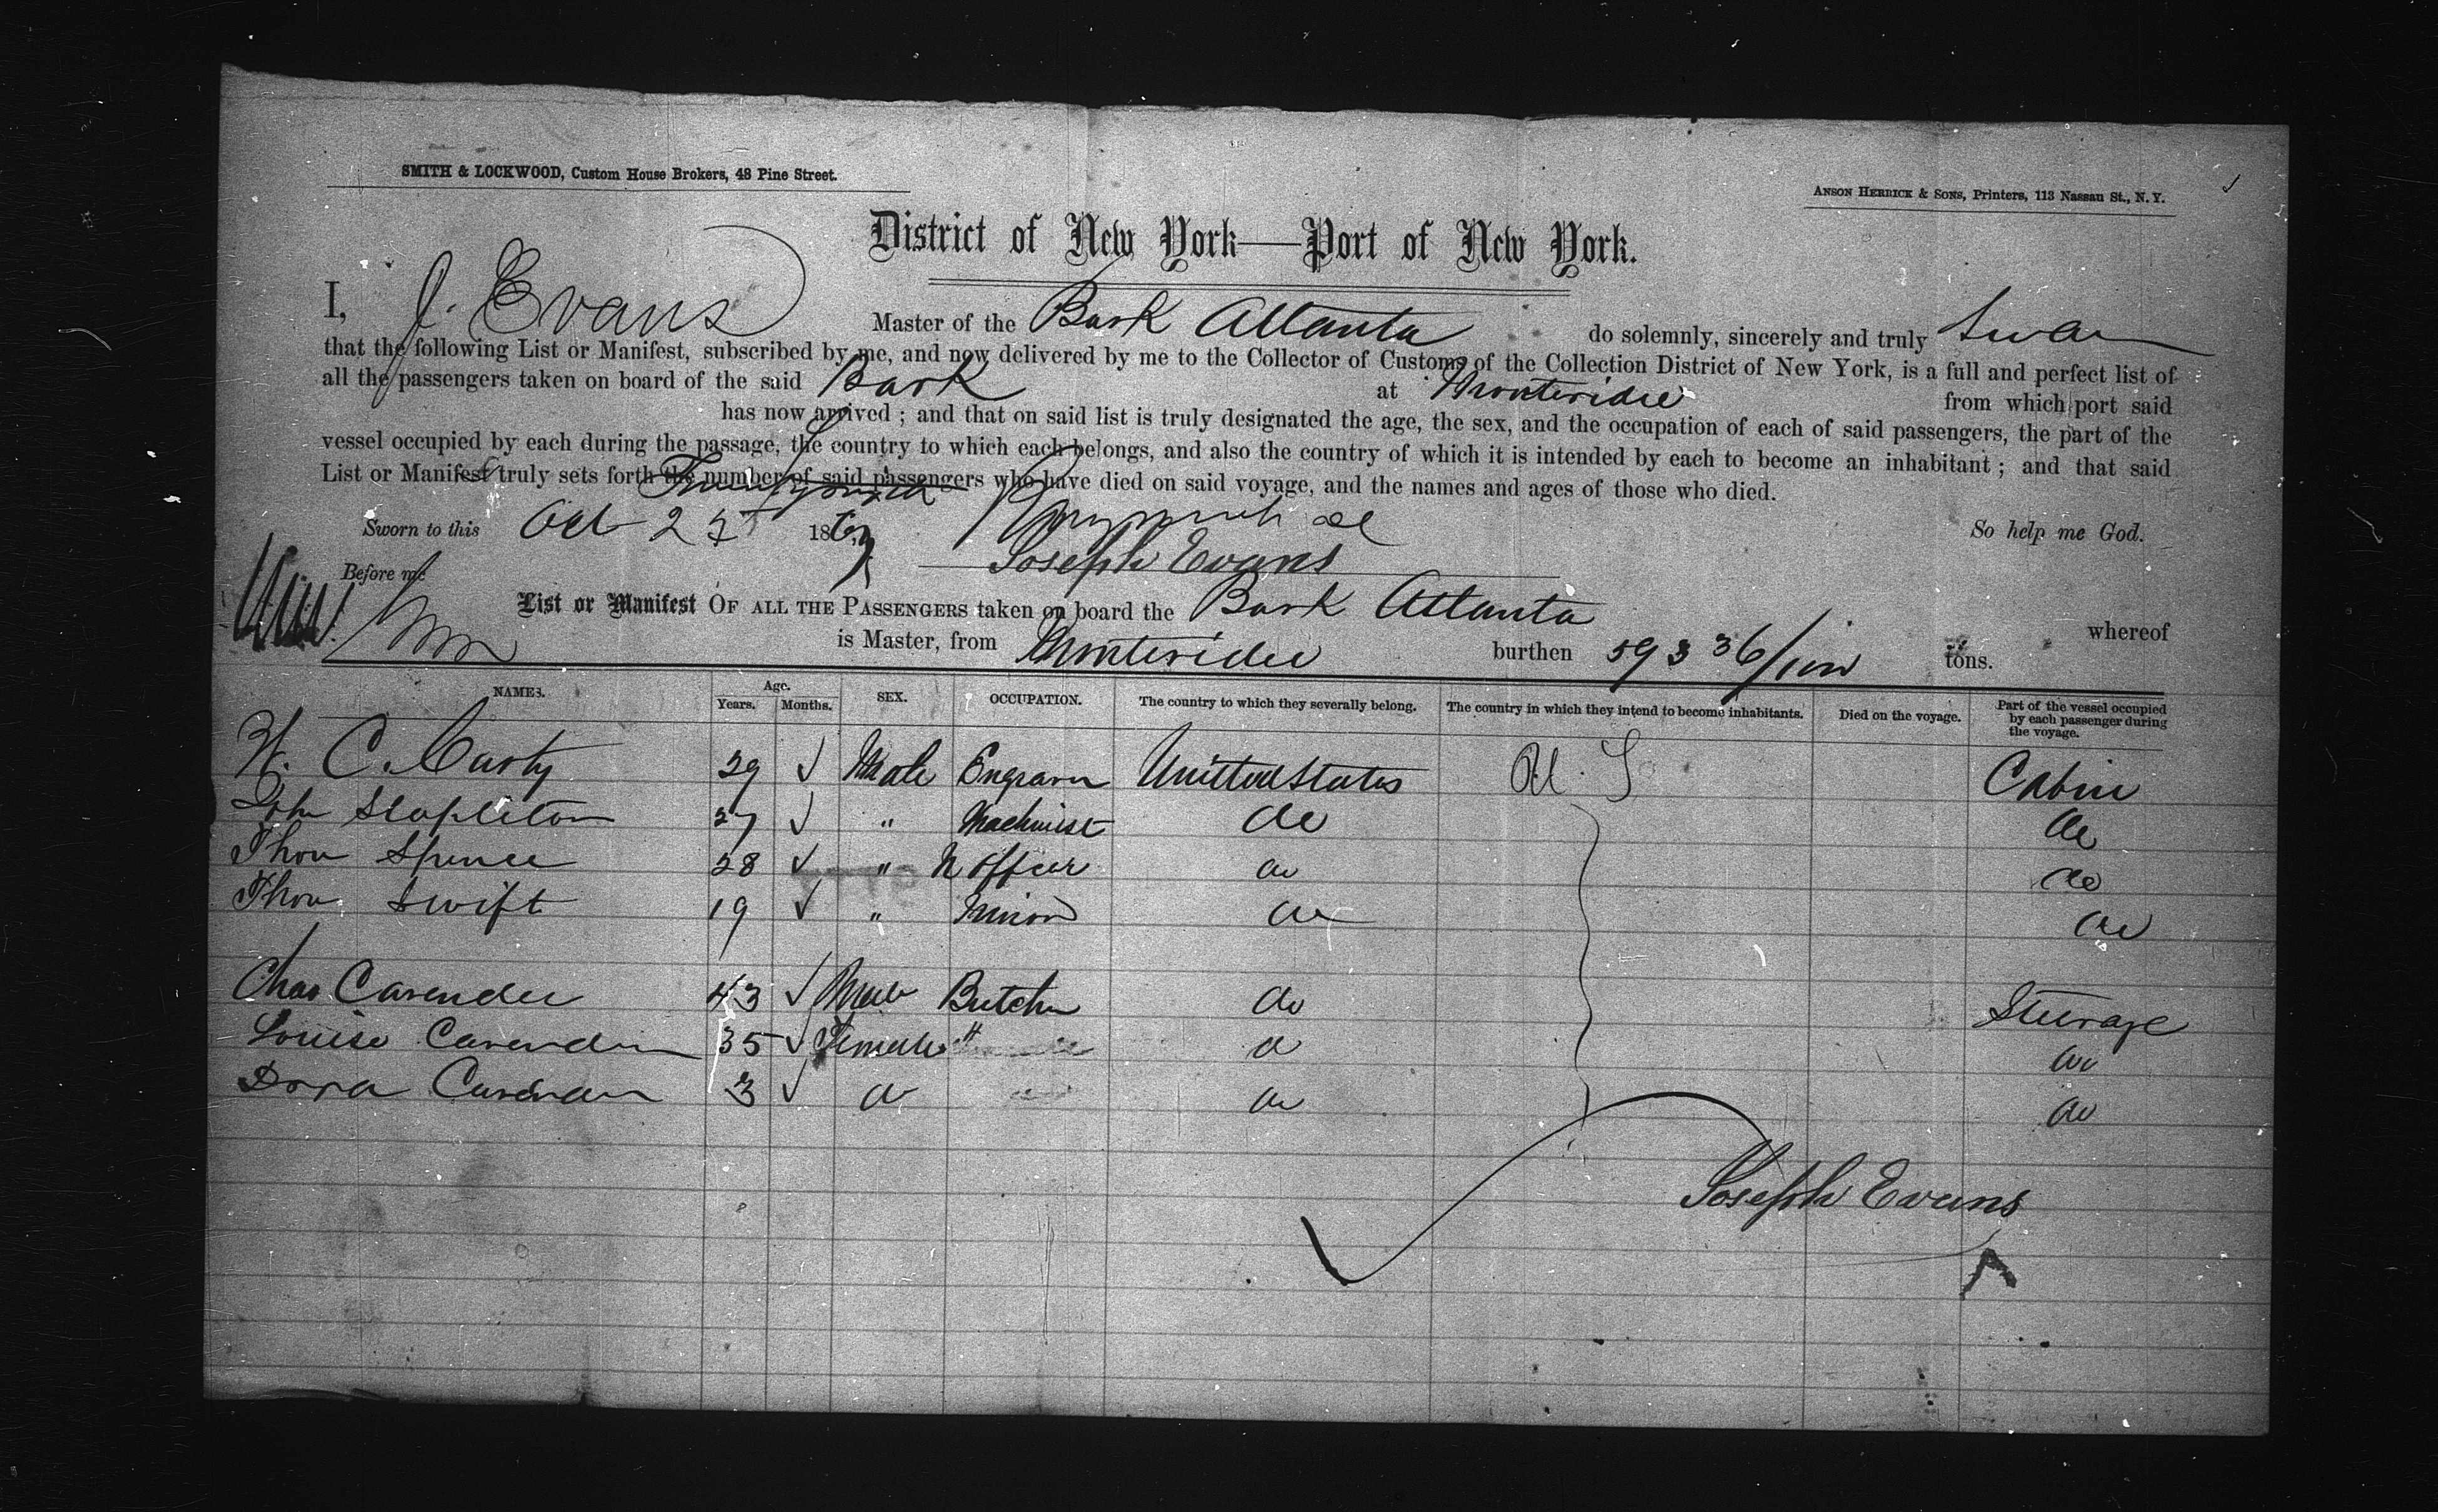 SMITH & LOCKWOOD, Custom House Brokers, 48 Pine Street.
ANSON HERRICK & SONS, Printers, 113 Nassau St., N.Y.
District of New York—Port of New York.
I, J. Evans Master of the Bark Atlanta do solemnly, sincerely and truly Swear
that the following List or Manifest, subscribed by me, and now delivered by me to the Collector of Customs of the Collection District of New York, is a full and perfect list of
all the passengers taken on board of the said Bark at Montevideo from which port said
has now arrived; and that on said list is truly designated the age, the sex, and the occupation of each of said passengers, the part of the
vessel occupied by each during the passage, the country to which each belongs, and also the country of which it is intended by each to become an inhabitant; and that said
List or Manifest truly sets forth the number of said passengers who have died on said voyage, and the names and ages of those who died.
Sworn to this Oct 25 1867 So help me God.
Joseph Evans
Before me
List or Manifest OF ALL THE PASSENGERS taken on board the Bark Atlanta whereof
is Master, from Montevideo burthen 593 36/100 tons.
NAMES. Age. Years. Months. SEX. OCCUPATION. The country to which they severally belong. The country in which they intend to become inhabitants. Died on the voyage. Part of the vessel occupied by each passenger during the voyage.
H. C. Carty 29 ✓ Male Engraver United States U. S Cabin
John Stapleton 27 ✓ " Machinist do do
Thos Spence 28 ✓ " N Officer do do
Thos Swift 19 ✓ " Minor do do
Chas Cavender 43 ✓ Male Butcher do Steerage
Louise Cavender 35 ✓ Female " do do
Dora Cavender 3 ✓ do do do
Joseph Evans